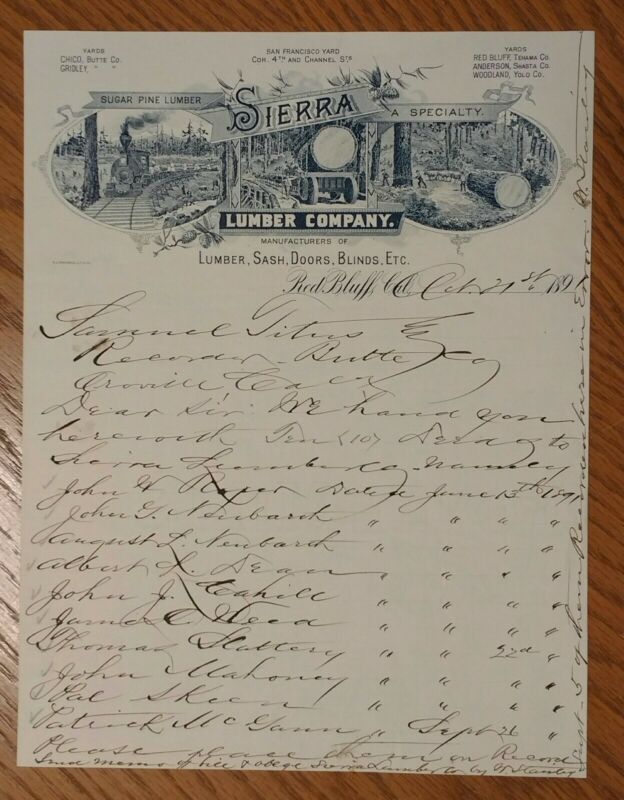 YARDS
CHICO, BUTTE CO.
GRIDLEY, " "
SAN FRANCISCO YARD
COR. 4TH AND CHANNEL STS
YARDS
RED BLUFF, TEHAMA CO.
ANDERSON, SHASTA CO.
WOODLAND, YOLO CO.
SUGAR PINE LUMBER
SIERRA
A SPECIALTY.
LUMBER COMPANY.
MANUFACTURERS OF
LUMBER, SASH, DOORS, BLINDS, ETC.
Red Bluff, Cal. Oct. 21st 189
Samuel Titus Esq
Recorder Butte Co
Oroville Cal
Dear Sir: We hand you
herewith Ten (10) Deeds to
Sierra Lumber Co. namely
John W Roper Dated June 13th 1891
John G. Neubarth " " " "
August L. Neubarth " " " "
Albert L. Dean " " " "
John J. Cahill " " " "
James E Reed " " " "
Thomas Slattery " " 22d "
John Mahoney " " " "
Pat Skeen " " " "
Patrick McGann " Sept 26 "
Please place them on Record
Send memo of bill & oblige Sierra Lumber Co by W Stanley